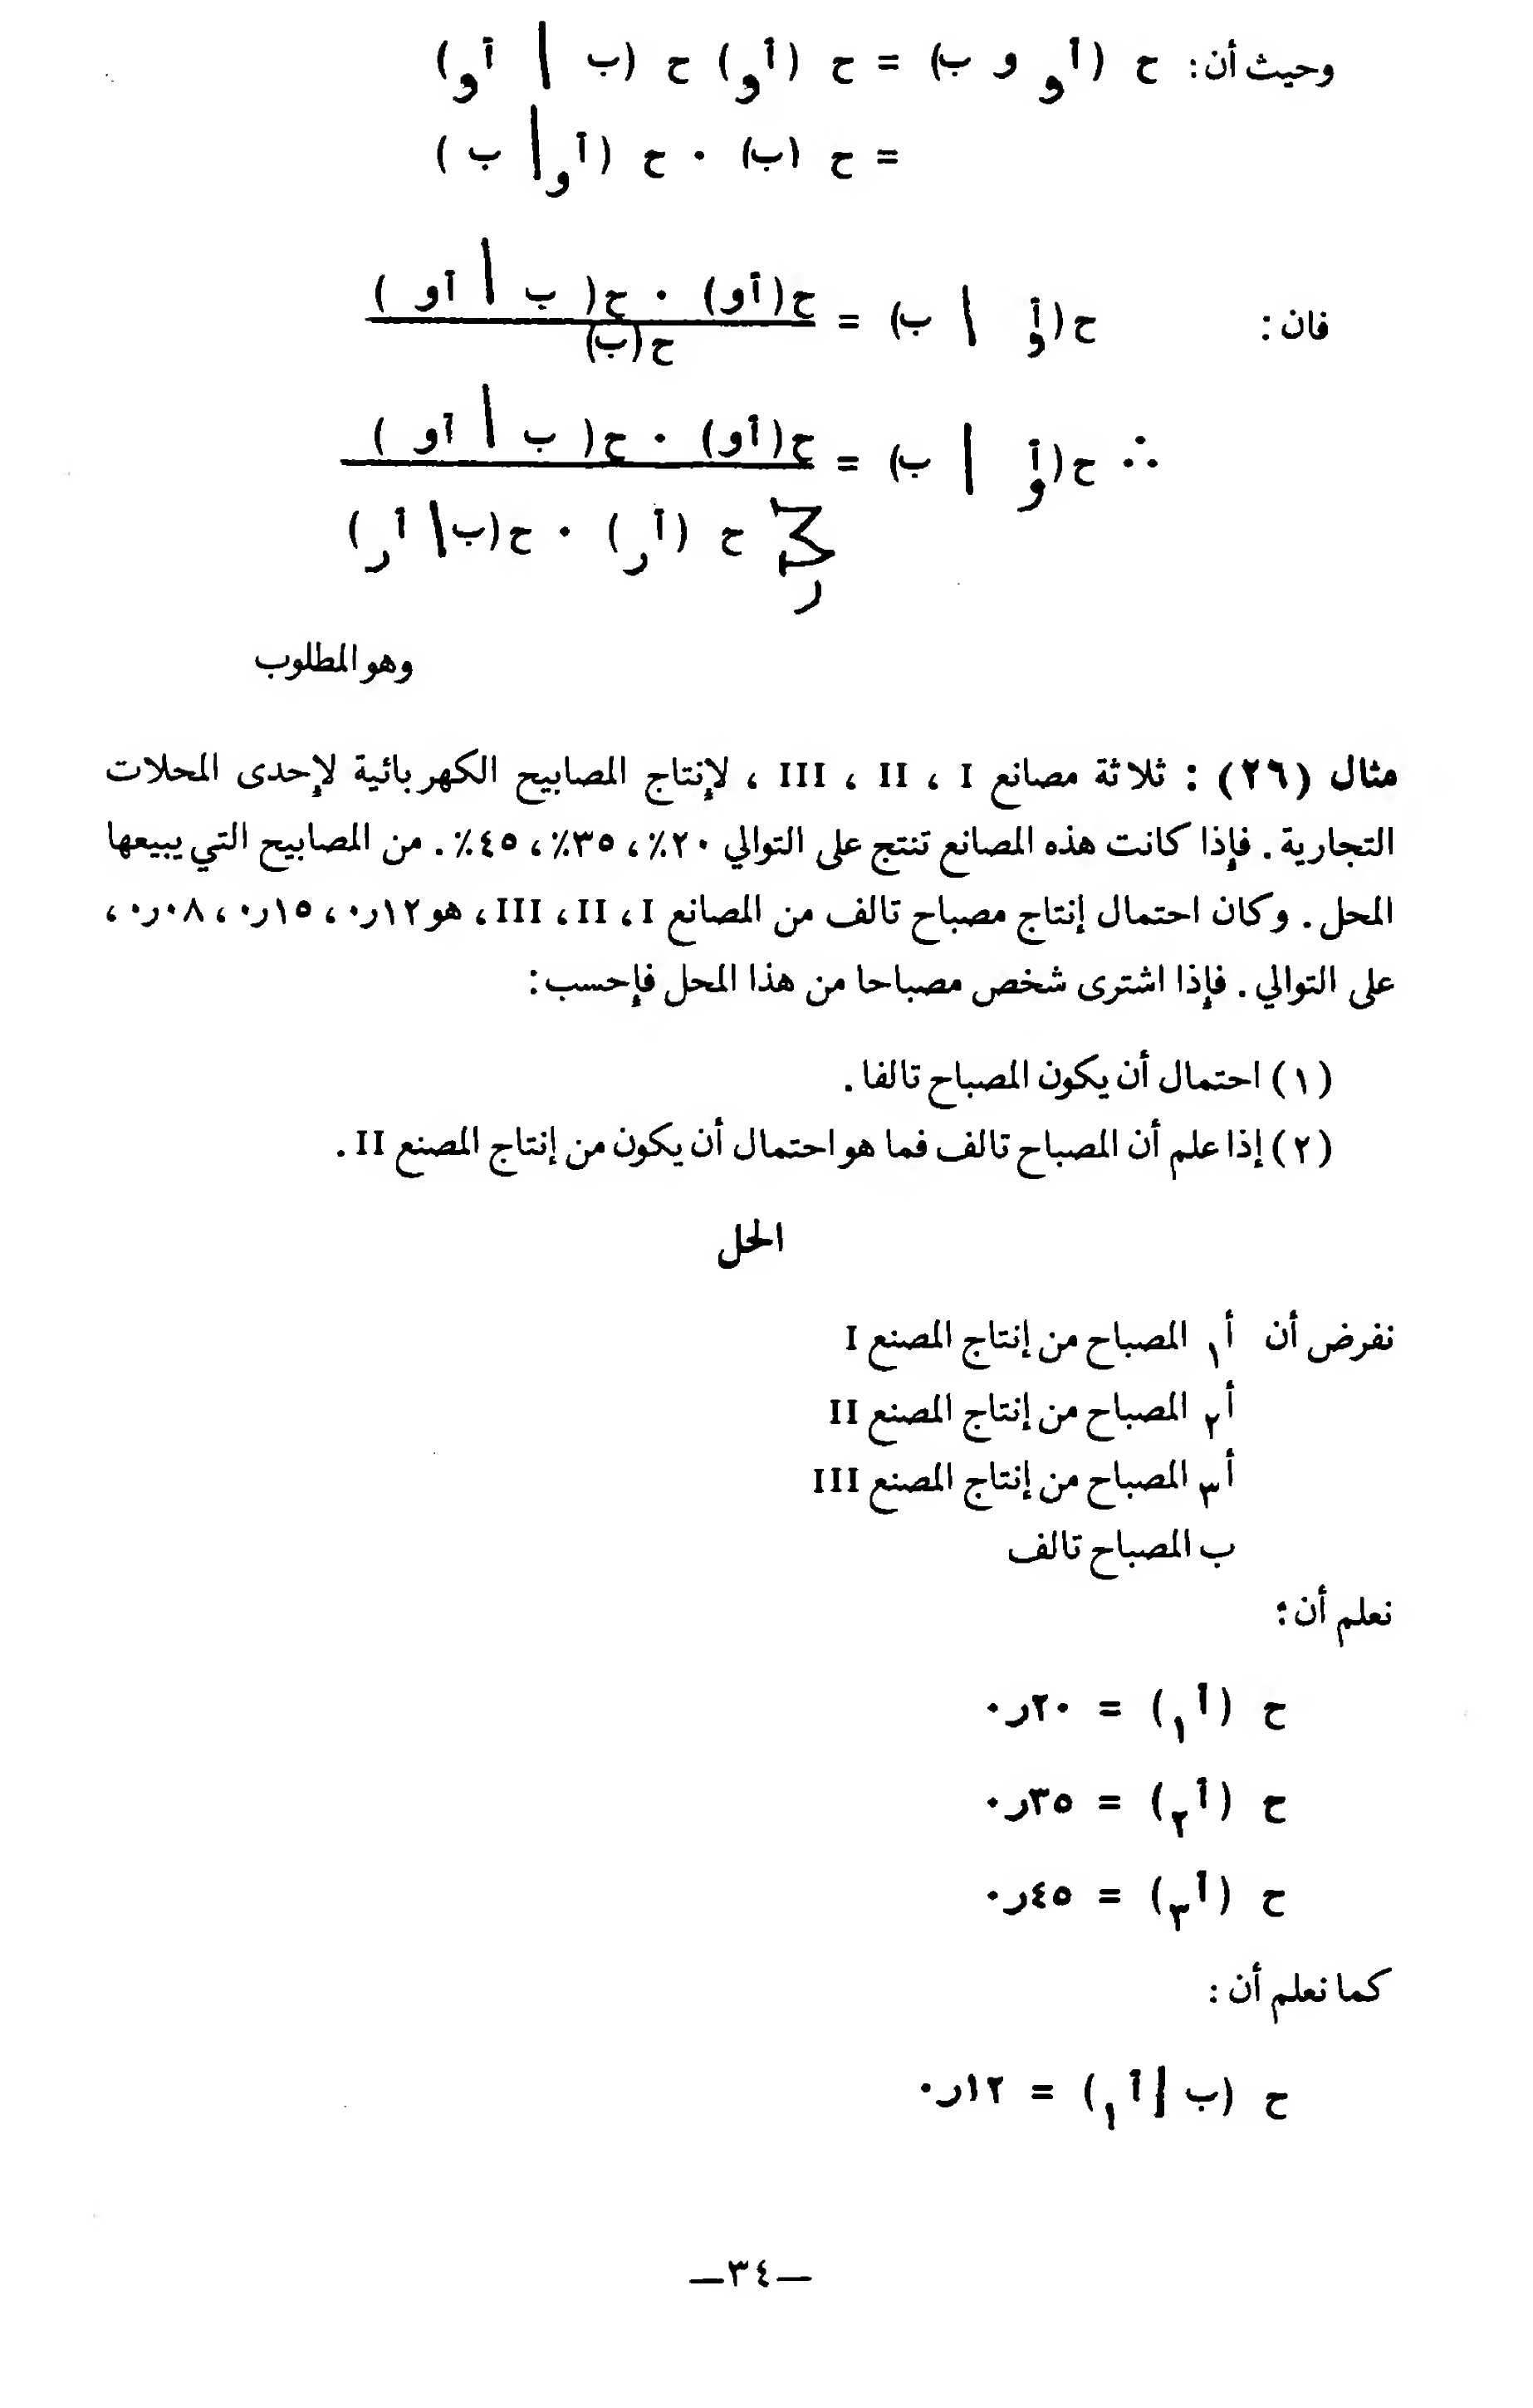 وحيث أن: ح (أو و ب) = ح (أو) ح (ب | أو)
= ح (ب) . ح (أو | ب)
فان: ح(أو | ب) = ح(أو) . ح( ب | أو )
ح(ب)
∴ ح(أو | ب) = ح(أو) . ح( ب | أو )
∑ ح (أر) . ح(ب | أر)
ر
وهو المطلوب
مثال (٢٦) : ثلاثة مصانع I ، II ، III ، لإنتاج المصابيح الكهربائية لإحدى المحلات
التجارية . فإذا كانت هذه المصانع تنتج على التوالي ٢٠٪، ٣٥٪، ٤٥٪ . من المصابيح التي يبيعها
المحل . وكان احتمال إنتاج مصباح تالف من المصانع I ، II ، III ، هو ١٢ر٠ ، ١٥ر٠ ، ٠٨ر٠ ،
على التوالي . فإذا اشترى شخص مصباحا من هذا المحل فإحسب:
(١) احتمال أن يكون المصباح تالفا .
(٢) إذا علم أن المصباح تالف فما هو احتمال أن يكون من إنتاج المصنع II .
الحل
نفرض أن أ١ المصباح من إنتاج المصنع I
أ٢ المصباح من إنتاج المصنع II
أ٣ المصباح من إنتاج المصنع III
ب المصباح تالف
نعلم أن:
ح (أ١) = ٢٠ر٠
ح (أ٢) = ٣٥ر٠
ح (أ٣) = ٤٥ر٠
كما نعلم أن :
ح (ب | أ١) = ١٢ر٠
—٣٤—